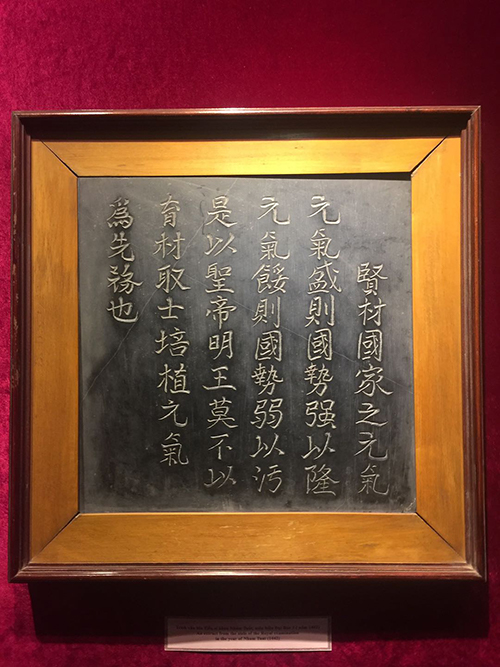 賢材國家之元氣
元氣盛則國勢强以隆
元氣餒則國勢弱以污
是以聖帝明王莫不以
育材取士培植元氣
為先務也